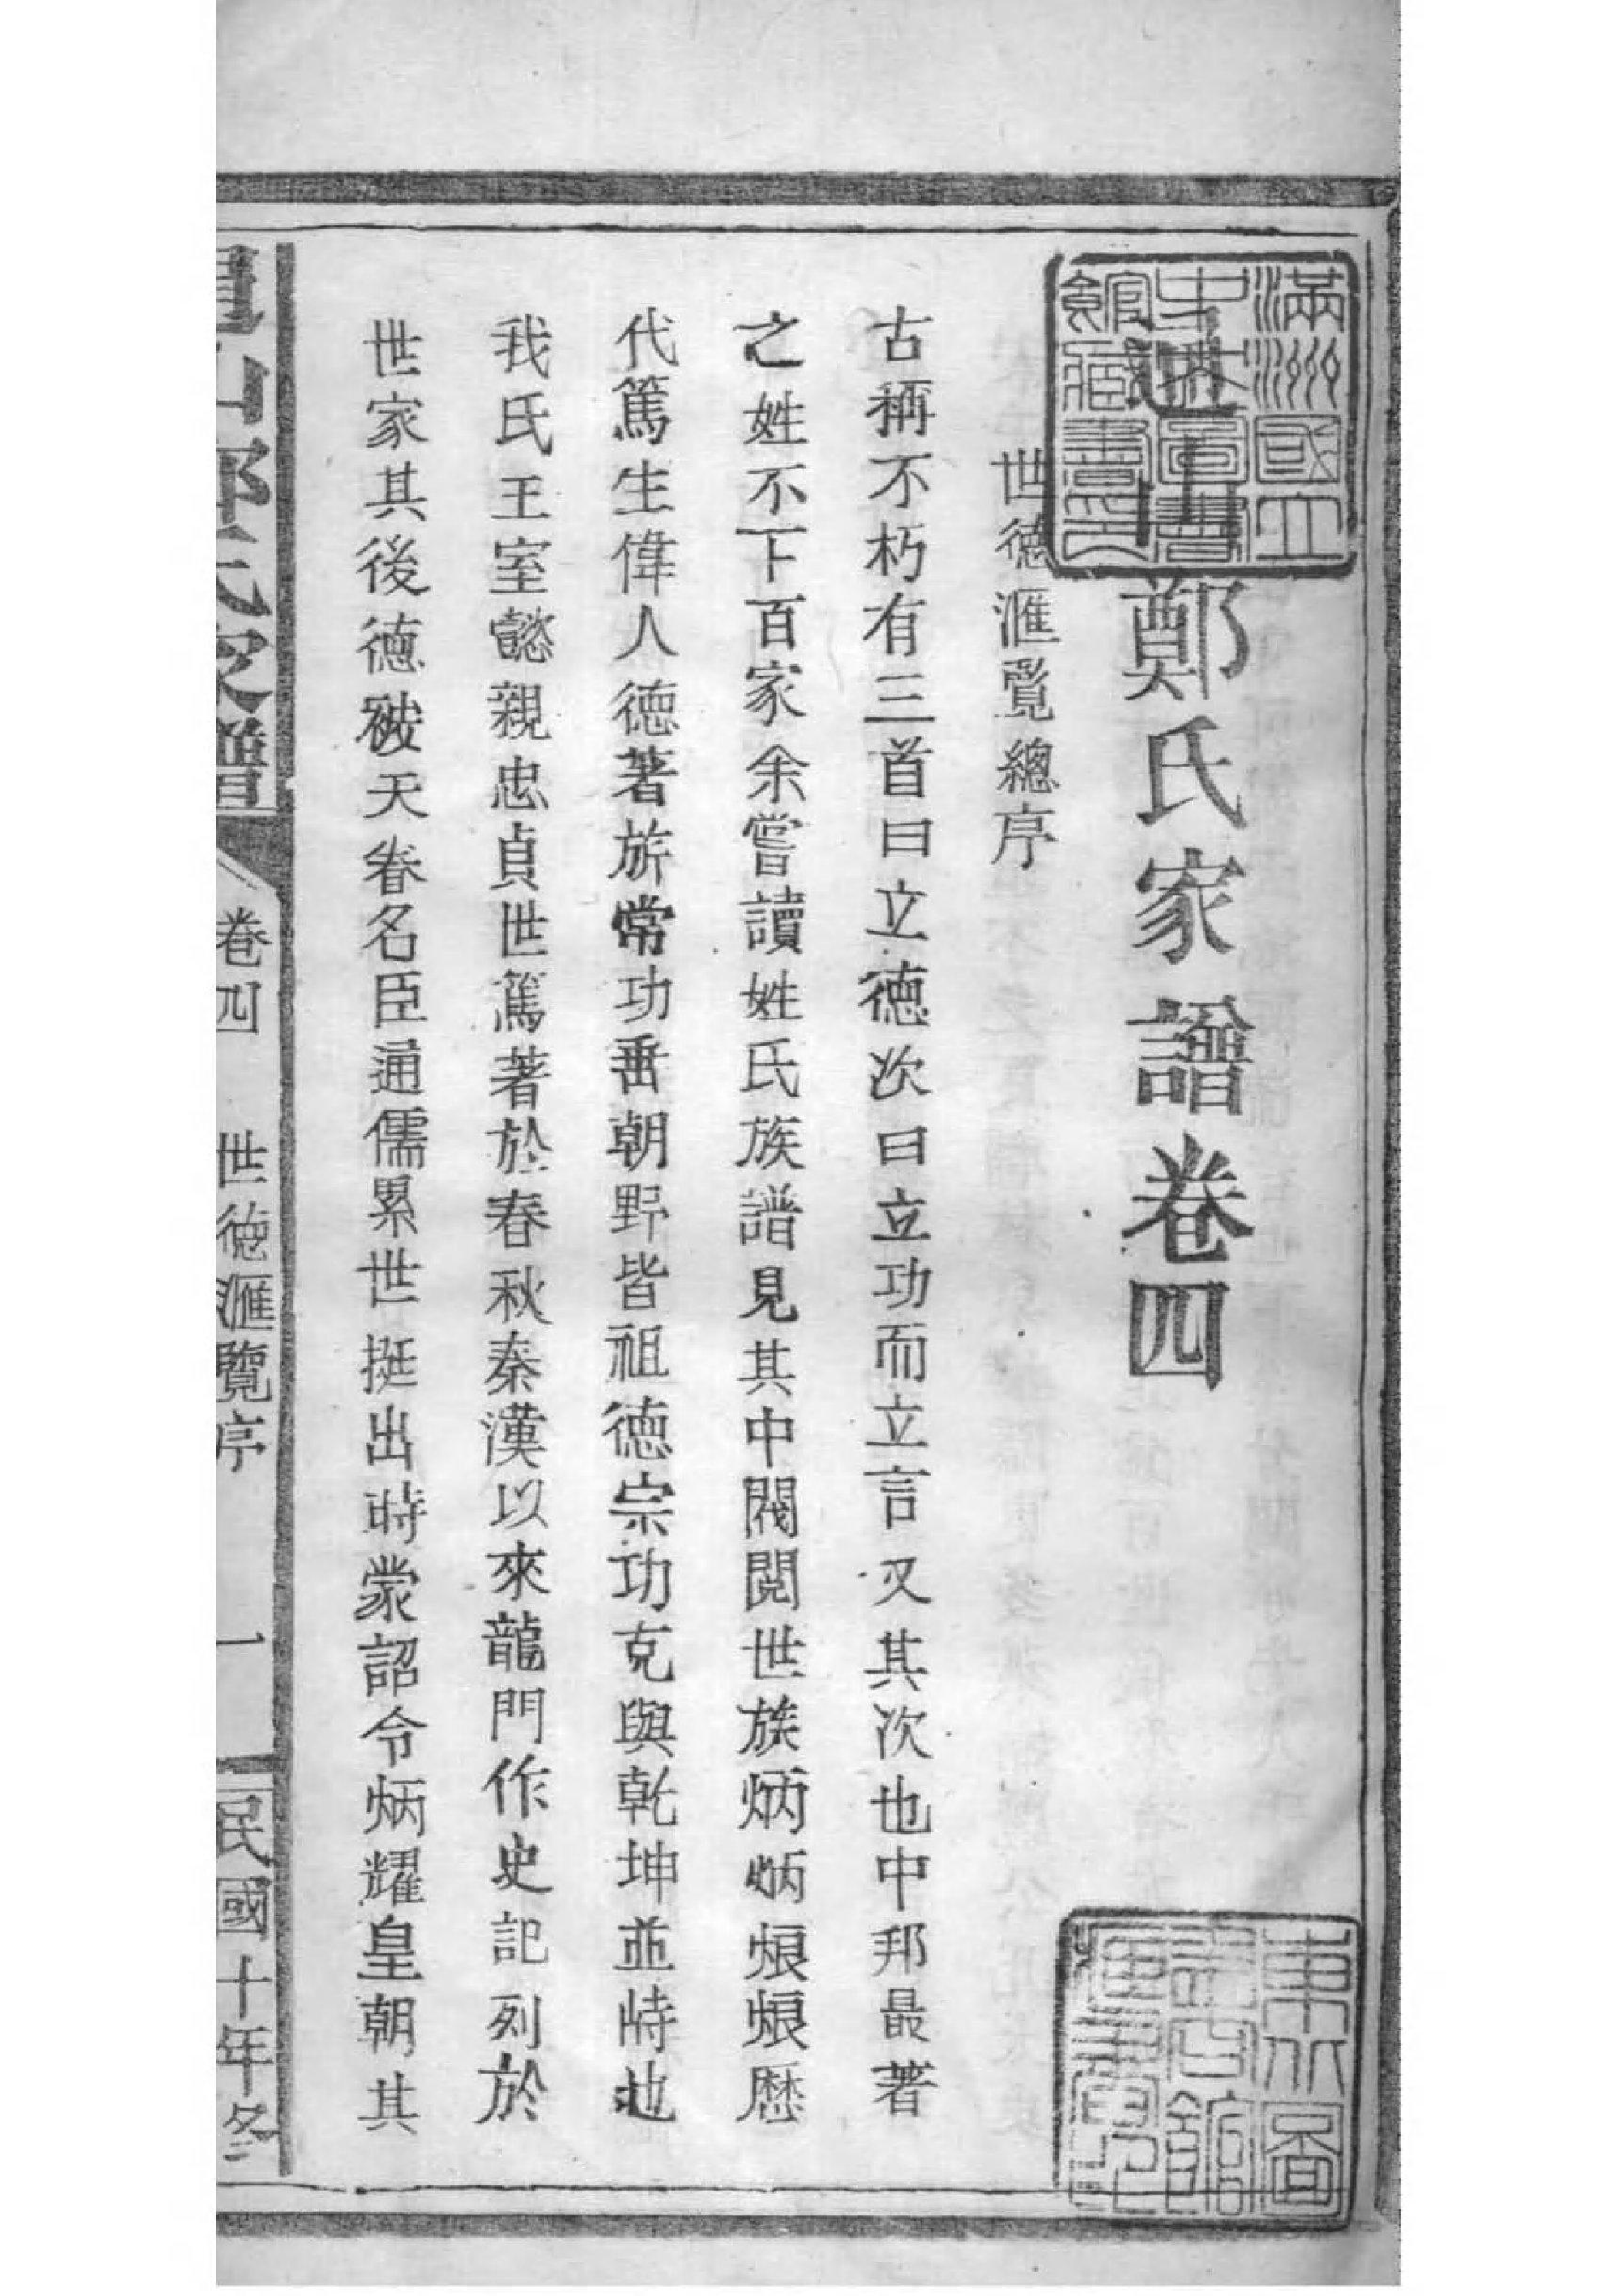 鄭氏家譜卷四
世德滙覽總序
古稱不朽有三首曰立德次曰立功而立言又其次也中邦最著
之姓不下百家余嘗讀姓氏族譜見其中閥閱世族炳炳烺烺歷
代篤生偉人德著旂常功垂朝野皆祖德宗功克與乾坤並峙也
我氏王室懿親忠貞世篤著於春秋秦漢以來龍門作史記列於
世家其後德被天眷名臣通儒累世挺出時蒙詔令炳耀皇朝其
山鄭氏家譜
卷四
世德滙覽序
一
民國十年冬
滿洲國立中央圖書館藏書之印
東北圖書館